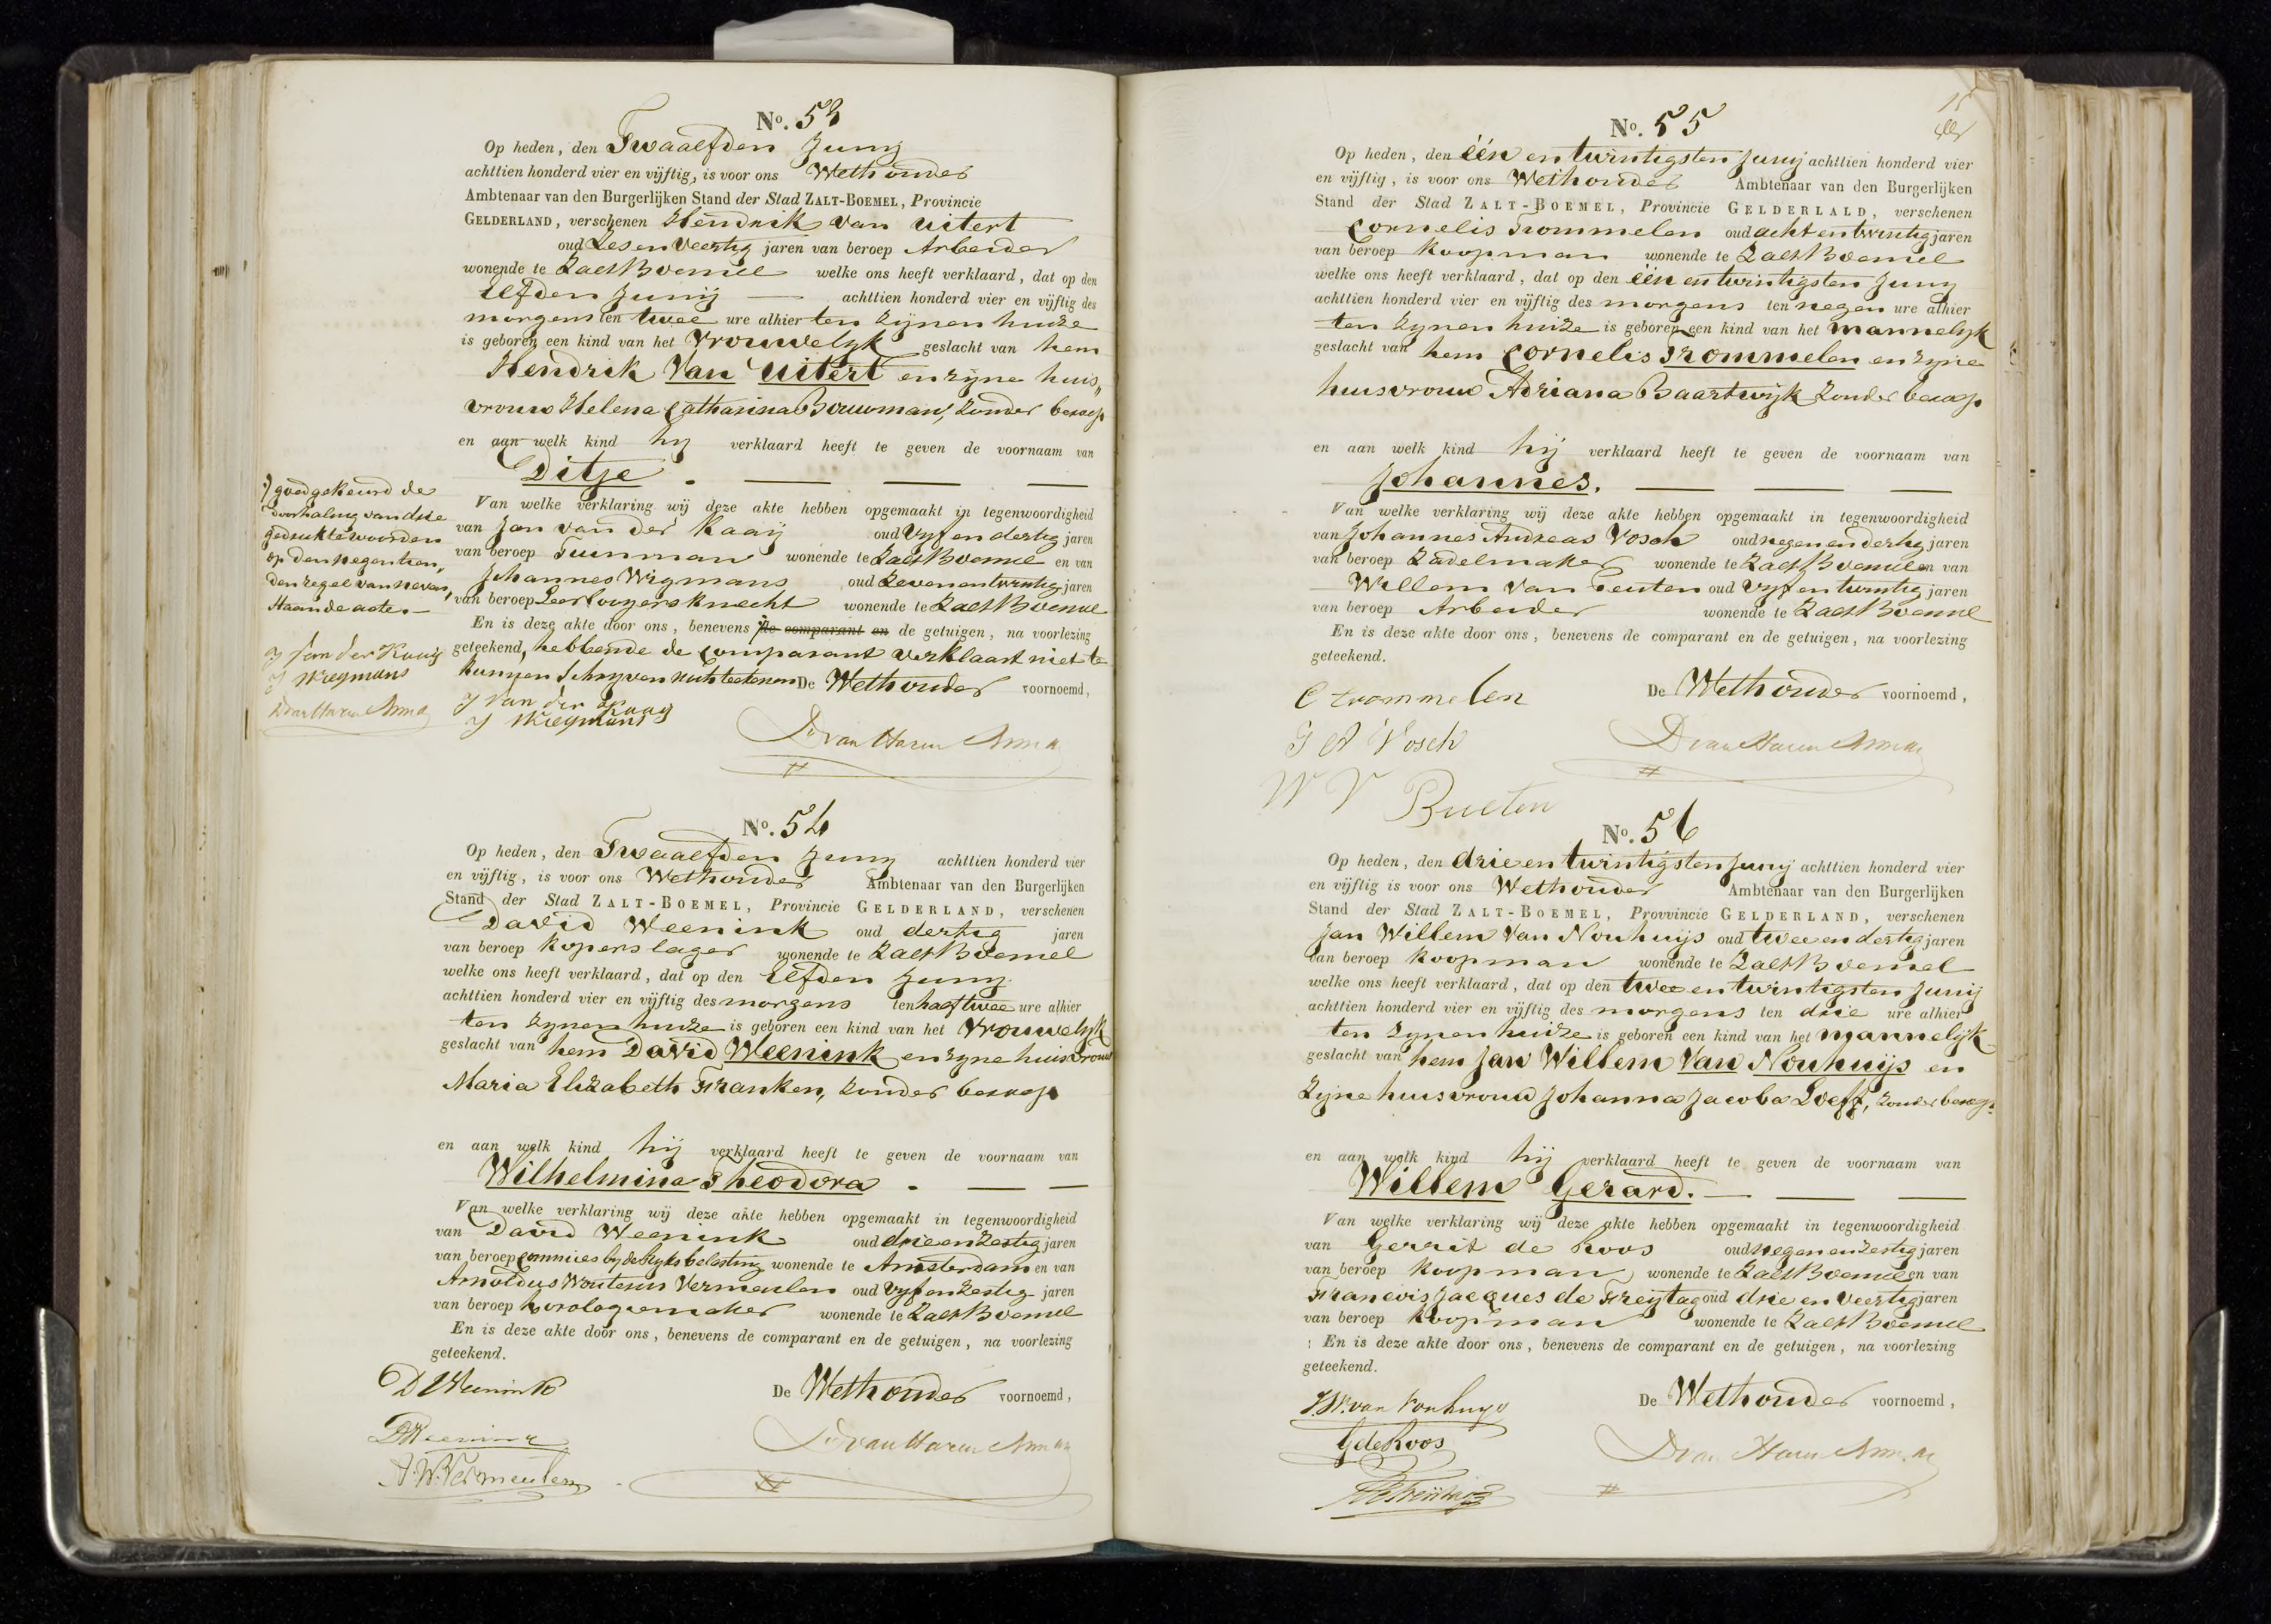 No. 53
Op heden, den Twaalfden Junij
achttien honderd vier en vijftig, is voor ons Wethouder
Ambtenaar van den Burgerlijken Stand der Stad ZALT-BOEMEL, Provincie
GELDERLAND, verschenen Hendrik van Uitert
oud Zes en Veertig jaren van beroep Arbeider
wonende te ZaltBoemel welke ons heeft verklaard, dat op den
Elfden Junij achttien honderd vier en vijftig des
morgens ten twee ure alhier ten zijnen huize
is geboren een kind van het Vrouwelijk geslacht van hem
Hendrik Van Uitert en zijne huis„
vrouw Helena Catharina Bouwman, zonder beroep
en aan welk kind hij verklaard heeft te geven de voornaam van
Ditje.
Van welke verklaring wij deze akte hebben opgemaakt in tegenwoordigheid
van Jan van der Kaaij oud Vijf en dertig jaren
van beroep Tuinman wonende te ZaltBoemel en van
Johannes Wigmans oud Zeven en twintig jaren
van beroep Leerlooijersknecht wonende te ZaltBoemel
En is deze akte door ons, benevens de comparant en de getuigen, na voorlezing
geteekend, hebbende de comparant verklaart niet te
kunnen schrijven nuch teekenen De Wethouder voornoemd,
J Van der Kaay
J Wiegmans
D van Haren Noman
) goedgekeurd de
doorhaling van drie
gedrukte woorden
op den negentien„
den regel van neven„
staande acte.
J Van der Kaaij
J Wiegmans
D van Haren Noman
No. 54
Op heden, den Twaalfden Junij achttien honderd vier
en vijftig, is voor ons Wethouder Ambtenaar van den Burgerlijken
Stand der Stad ZALT-BOEMEL, Provincie GELDERLAND, verschenen
David Weenink oud dertig jaren
van beroep koperslager wonende te ZaltBoemel
welke ons heeft verklaard, dat op den Elfden Junij
achttien honderd vier en vijftig des morgens ten half twee ure alhier
ten zijnen huize is geboren een kind van het Vrouwelijk
geslacht van hem David Weenink en zijne huisvrouw
Maria Elizabeth Franken, zonder beroep
en aan welk kind hij verklaard heeft te geven de voornaam van
Wilhelmina Theodora.
Van welke verklaring wij deze akte hebben opgemaakt in tegenwoordigheid
van David Weenink oud drie en zestig jaren
van beroep commies bij de Rijks belasting wonende te Amsterdam en van
Arnoldus Wouterus Vermeulen oud Vijf en zestig jaren
van beroep horologiemaker wonende te ZaltBoemel
En is deze akte door ons, benevens de comparant en de getuigen, na voorlezing
geteekend.
De Wethouder voornoemd,
D Weenink
D Weenink
A.W. Vermeulen
D van Haren Noman
15
No. 55
Op heden, den één en twintigsten Junij achttien honderd vier
en vijftig, is voor ons Wethouder Ambtenaar van den Burgerlijken
Stand der Stad ZALT-BOEMEL, Provincie GELDERLALD, verschenen
Cornelis Trommelen oud acht en twintig jaren
van beroep koopman wonende te ZaltBoemel
welke ons heeft verklaard, dat op den één en twintigsten Junij
achttien honderd vier en vijftig des morgens ten negen ure alhier
ten zijnen huize is geboren een kind van het mannelijk
geslacht van hem Cornelis Trommelen en zijne
huisvrouw Adriana Baartwijk zonder beroep
en aan welk kind hij verklaard heeft te geven de voornaam van
Johannes.
Van welke verklaring wij deze akte hebben opgemaakt in tegenwoordigheid
van Johannes Andreas Vosch oud negen en dertig jaren
van beroep Zadelmaker wonende te ZaltBoemel en van
Willem van Beuten oud vijf en twintig jaren
van beroep Arbeider wonende te ZaltBoemel
En is deze akte door ons, benevens de comparant en de getuigen, na voorlezing
geteekend.
De Wethouder voornoemd,
C trommelen
J A Vosch
W V Bueten
D van Haren Noman
No. 56
Op heden, den drie en twintigsten Junij achttien honderd vier
en vijftig is voor ons Wethouder Ambtenaar van den Burgerlijken
Stand der Stad ZALT-BOEMEL, Provvincie GELDERLAND, verschenen
Jan Willem Van Nouhuijs oud twee en dertig jaren
van beroep koopman wonende te ZaltBoemel
welke ons heeft verklaard, dat op den twee en twintigsten Junij
achttien honderd vier en vijftig des morgens ten drie ure alhier
ten zijnen huize is geboren een kind van het mannelijk
geslacht van hem Jan Willem Van Nouhuijs en
zijne huisvrouw Johanna Jacoba Loeff, zonder beroep
en aan welk kind hij verklaard heeft te geven de voornaam van
Willem Gerard.
Van welke verklaring wij deze akte hebben opgemaakt in tegenwoordigheid
van Gerrit de Roos oud negen en zestig jaren
van beroep koopman wonende te ZaltBoemel en van
Francois Jacques de Freijtag oud drie en Veertig jaren
van beroep koopman wonende te ZaltBoemel
En is deze akte door ons, benevens de comparant en de getuigen, na voorlezing
geteekend.
De Wethouder voornoemd,
J.W. van Nouhuys
G de Roos
D van Haren Noman